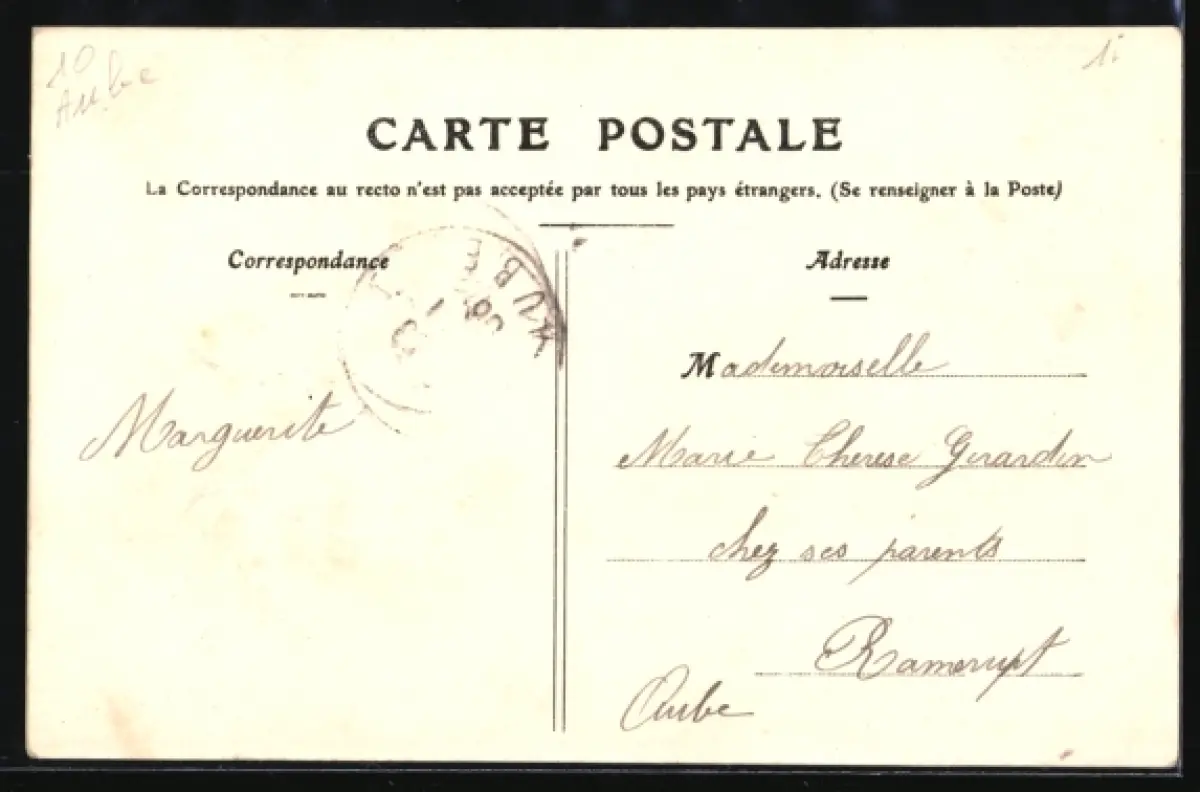 10
Aube
1
CARTE POSTALE
La Correspondance au recto n'est pas acceptée par tous les pays étrangers. (Se renseigner à la Poste)
Correspondance
Adresse
AUBE
Mademoiselle
Marguerite
Marie Therese Girardin
chez ses parents
Ramerupt
Aube